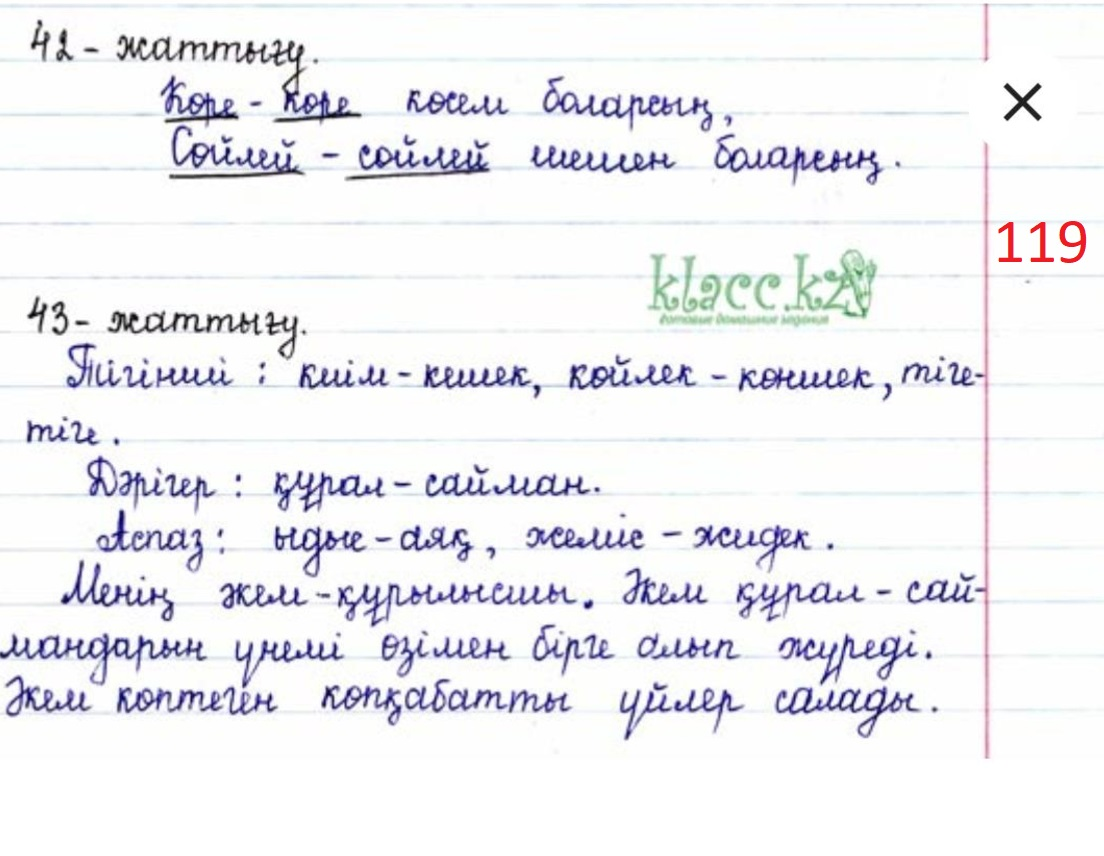 42 - жаттығу.
Көре - көре көсем боларсың,
Сөйлей - сөйлей шешен боларсың.
119
klacc.kz
готовые домашние задания
43 - жаттығу.
Тігінші : киім - кешек, көйлек - көншек, тіге-
тіге.
Дәрігер : құрал - сайман.
Аспаз : ыдыс - аяқ, жеміс - жидек.
Менің әкем - құрылысшы. Әкем құрал - сай-
мандарын үнемі өзімен бірге алып жүреді.
Әкем көптеген көпқабатты үйлер салады.